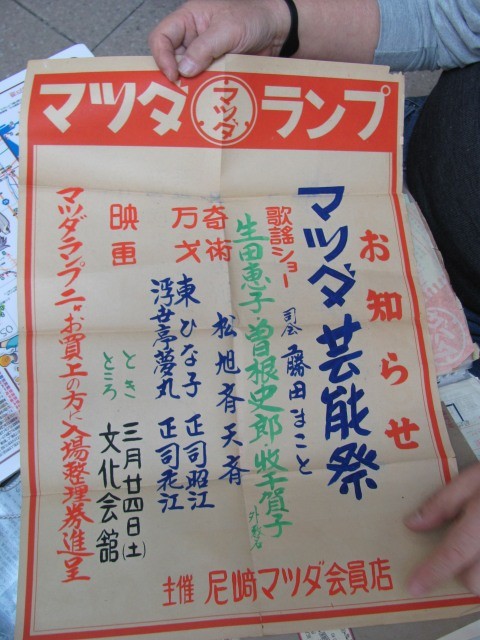 マツダ マツダ ランプ
お知らせ
マツダ芸能祭
歌謡ショー 司会 藤田まこと
生田恵子 曽根史郎 牧千賀子 外数名
奇術 松旭斉天斉
万才 東ひな子 正司昭江
浮世亭夢丸 正司花江
映画
とき 三月廿四日(土)
ところ 文化会館
マツダランプ二ヶお買上の方に入場整理券進呈
主催 尼崎マツダ会員店